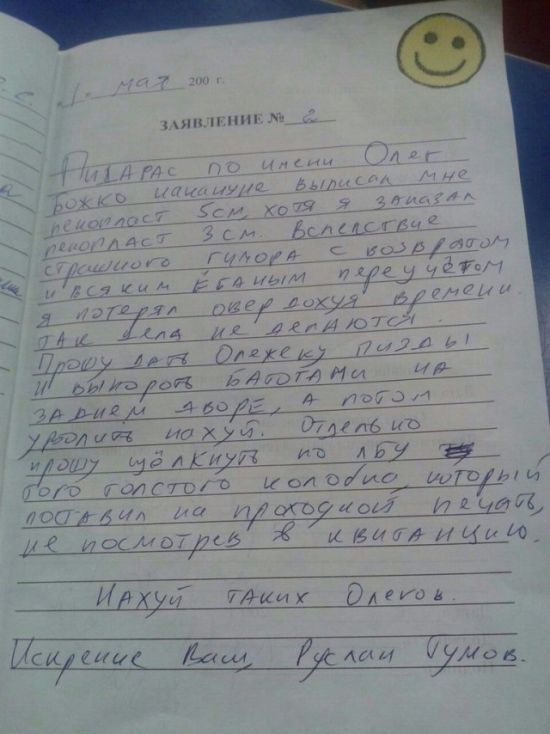 1. мая 200 г.
ЗАЯВЛЕНИЕ № 2
Пидарас по имени Олег
Божко накануне выписал мне
пенопласт 5см, хотя я заказал
пенопласт 3 см. Вследствие
страшного гумора с возвратом
и всяким ёбаным переучётом
я потерял овердохуя времени.
Так дела не делаются.
Прошу дать Олежеку пизды
и выпороть батогами на
заднем дворе, а потом
уволить нахуй. Отдельно
прошу щёлкнуть по лбу
того толстого колобка, который
поставил на проходной печать,
не посмотрев в квитанцию.
Нахуй таких Олегов.
Искрение Ваш, Руслан Гумов.